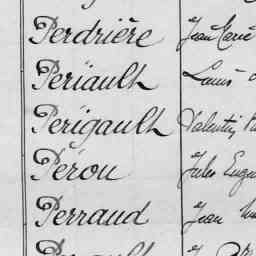 Perdrière Jean Marie
Périault Louis
Périgault Valentin
Pérou Jules Eugè
Perraud Jean